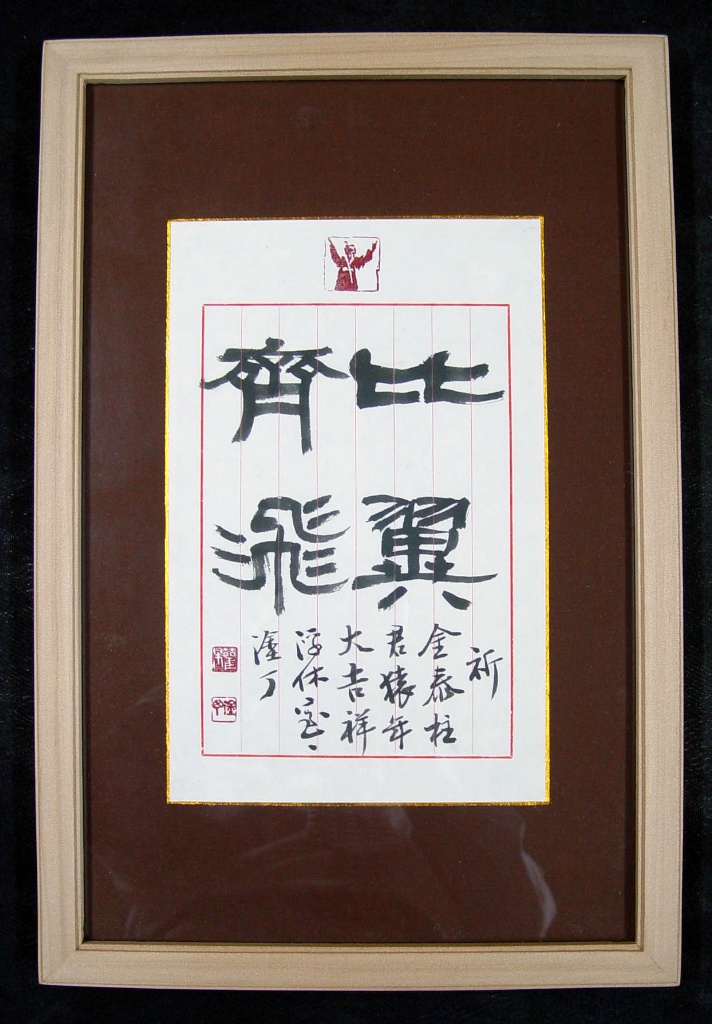 比翼
齊飛
祈
金泰柱
君猿年
大吉祥
浮休室、
塗丁